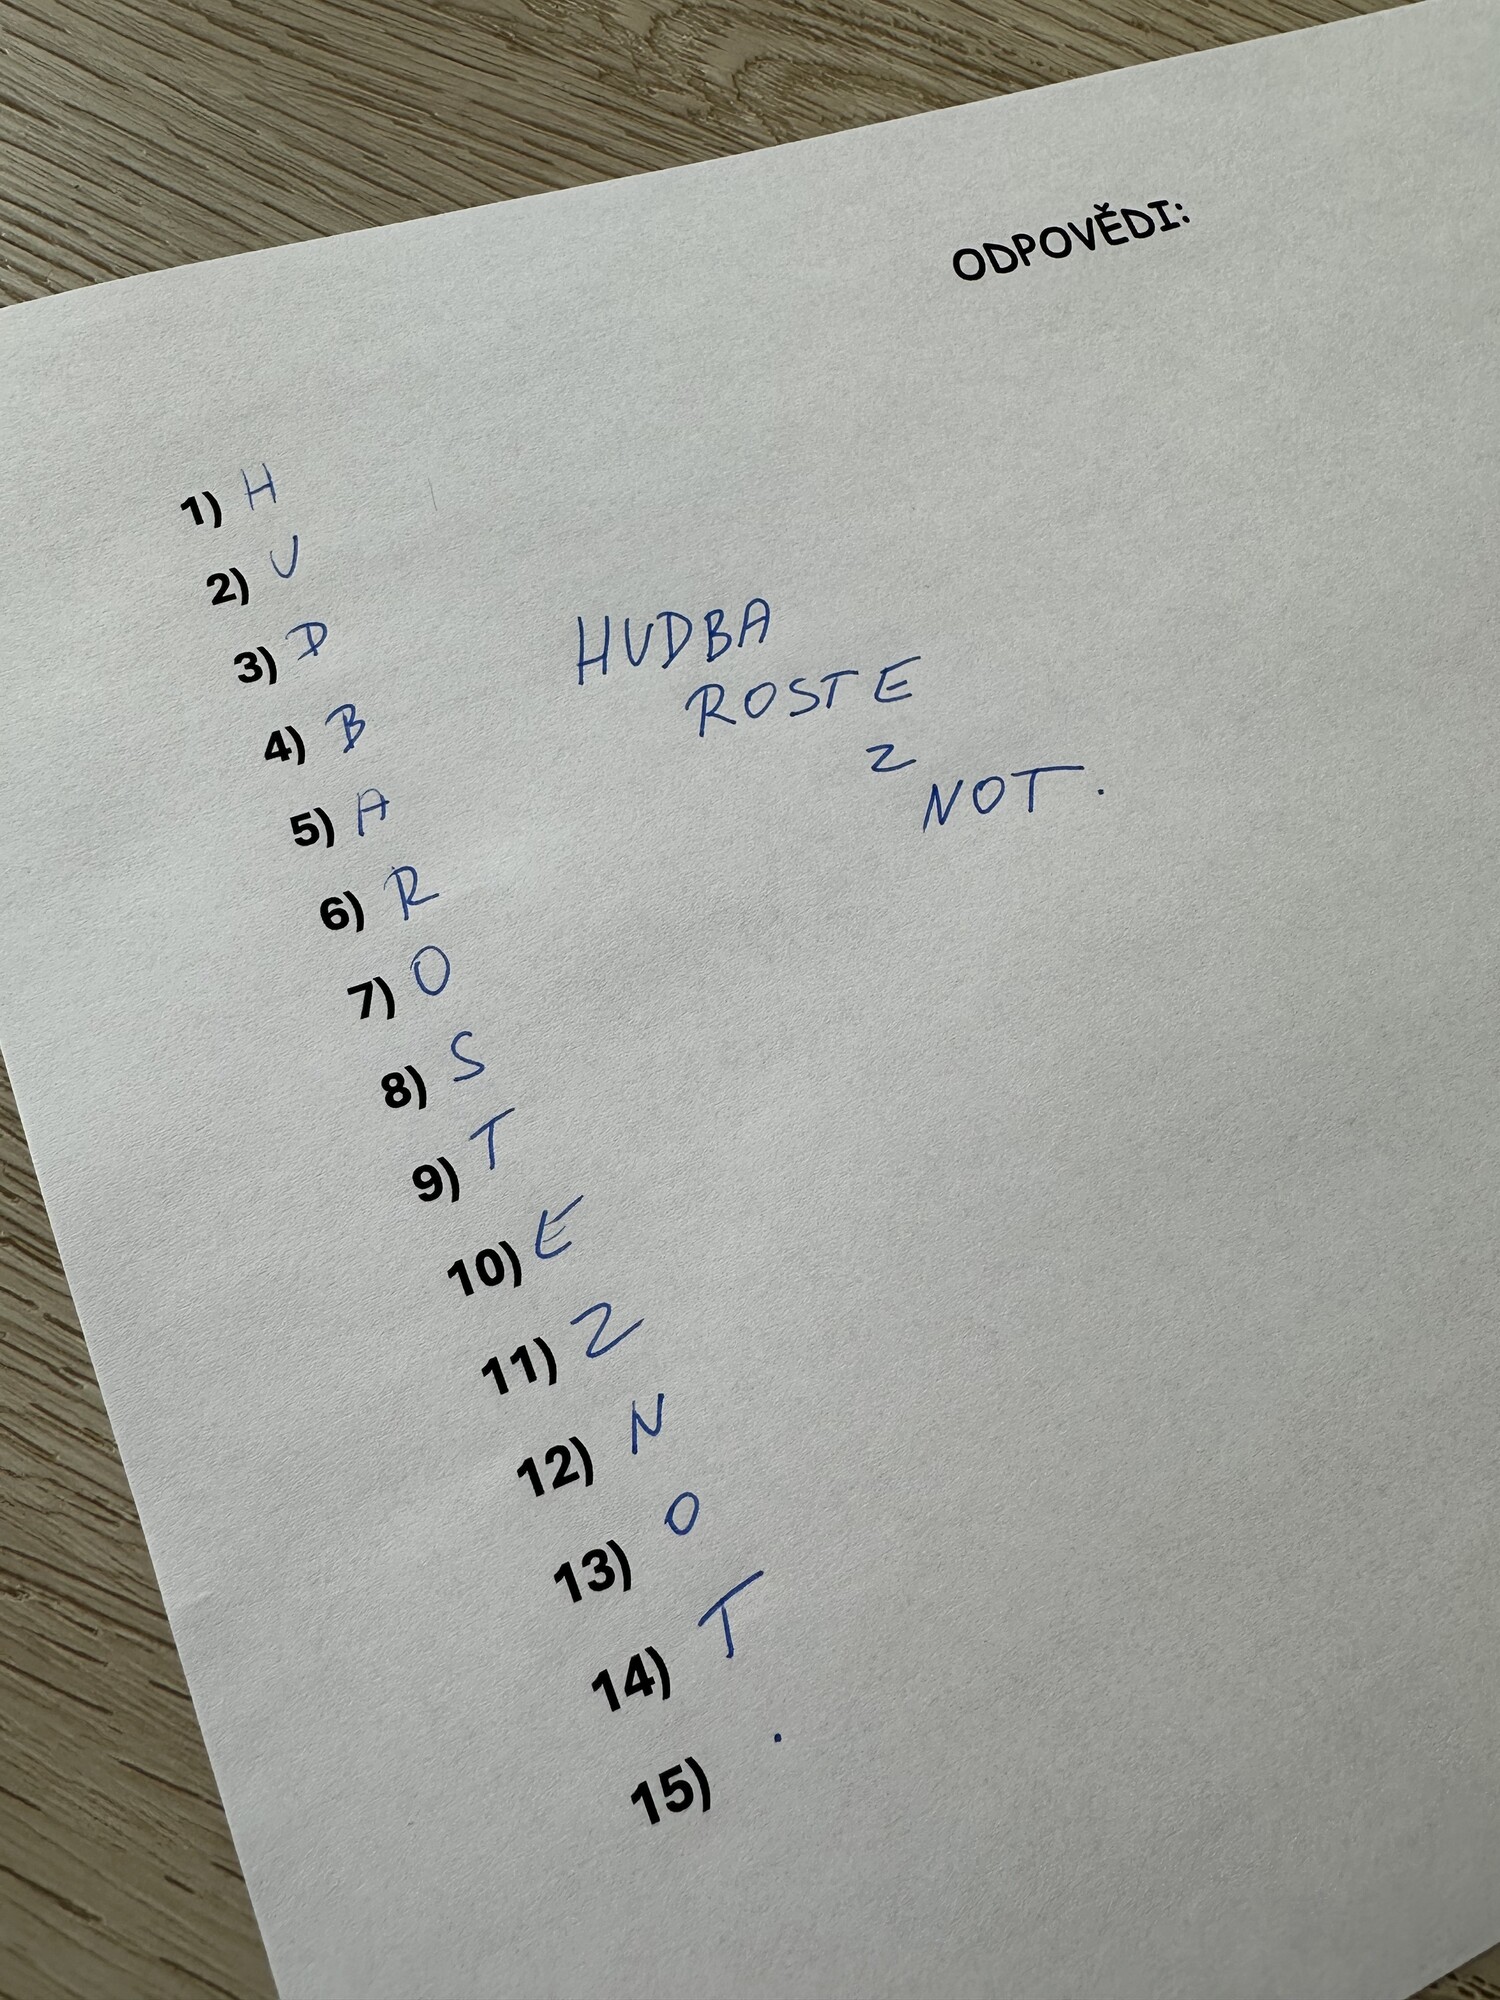 ODPOVĚDI:
1) H
2) U
3) D
4) B
5) A
6) R
7) O
8) S
9) T
10) E
11) Z
12) N
13) O
14) T
15) .
HUDBA
ROSTE
Z
NOT.